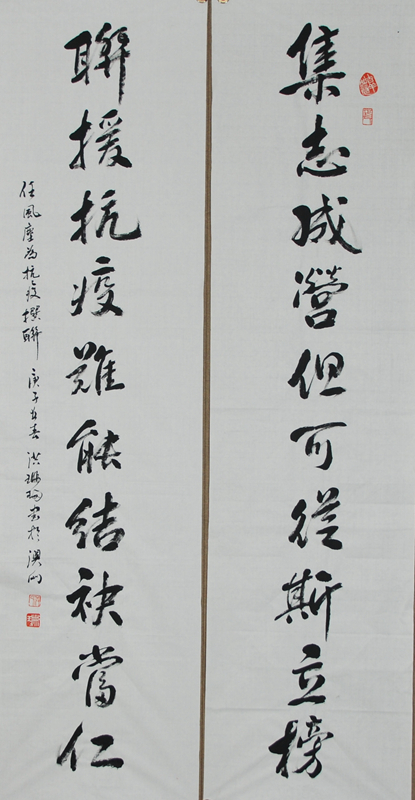 集志成營但可從斯立榜
聯援抗疫難能結袂當仁
任風塵為抗疫撰聯 庚子春 洪 書於澳門